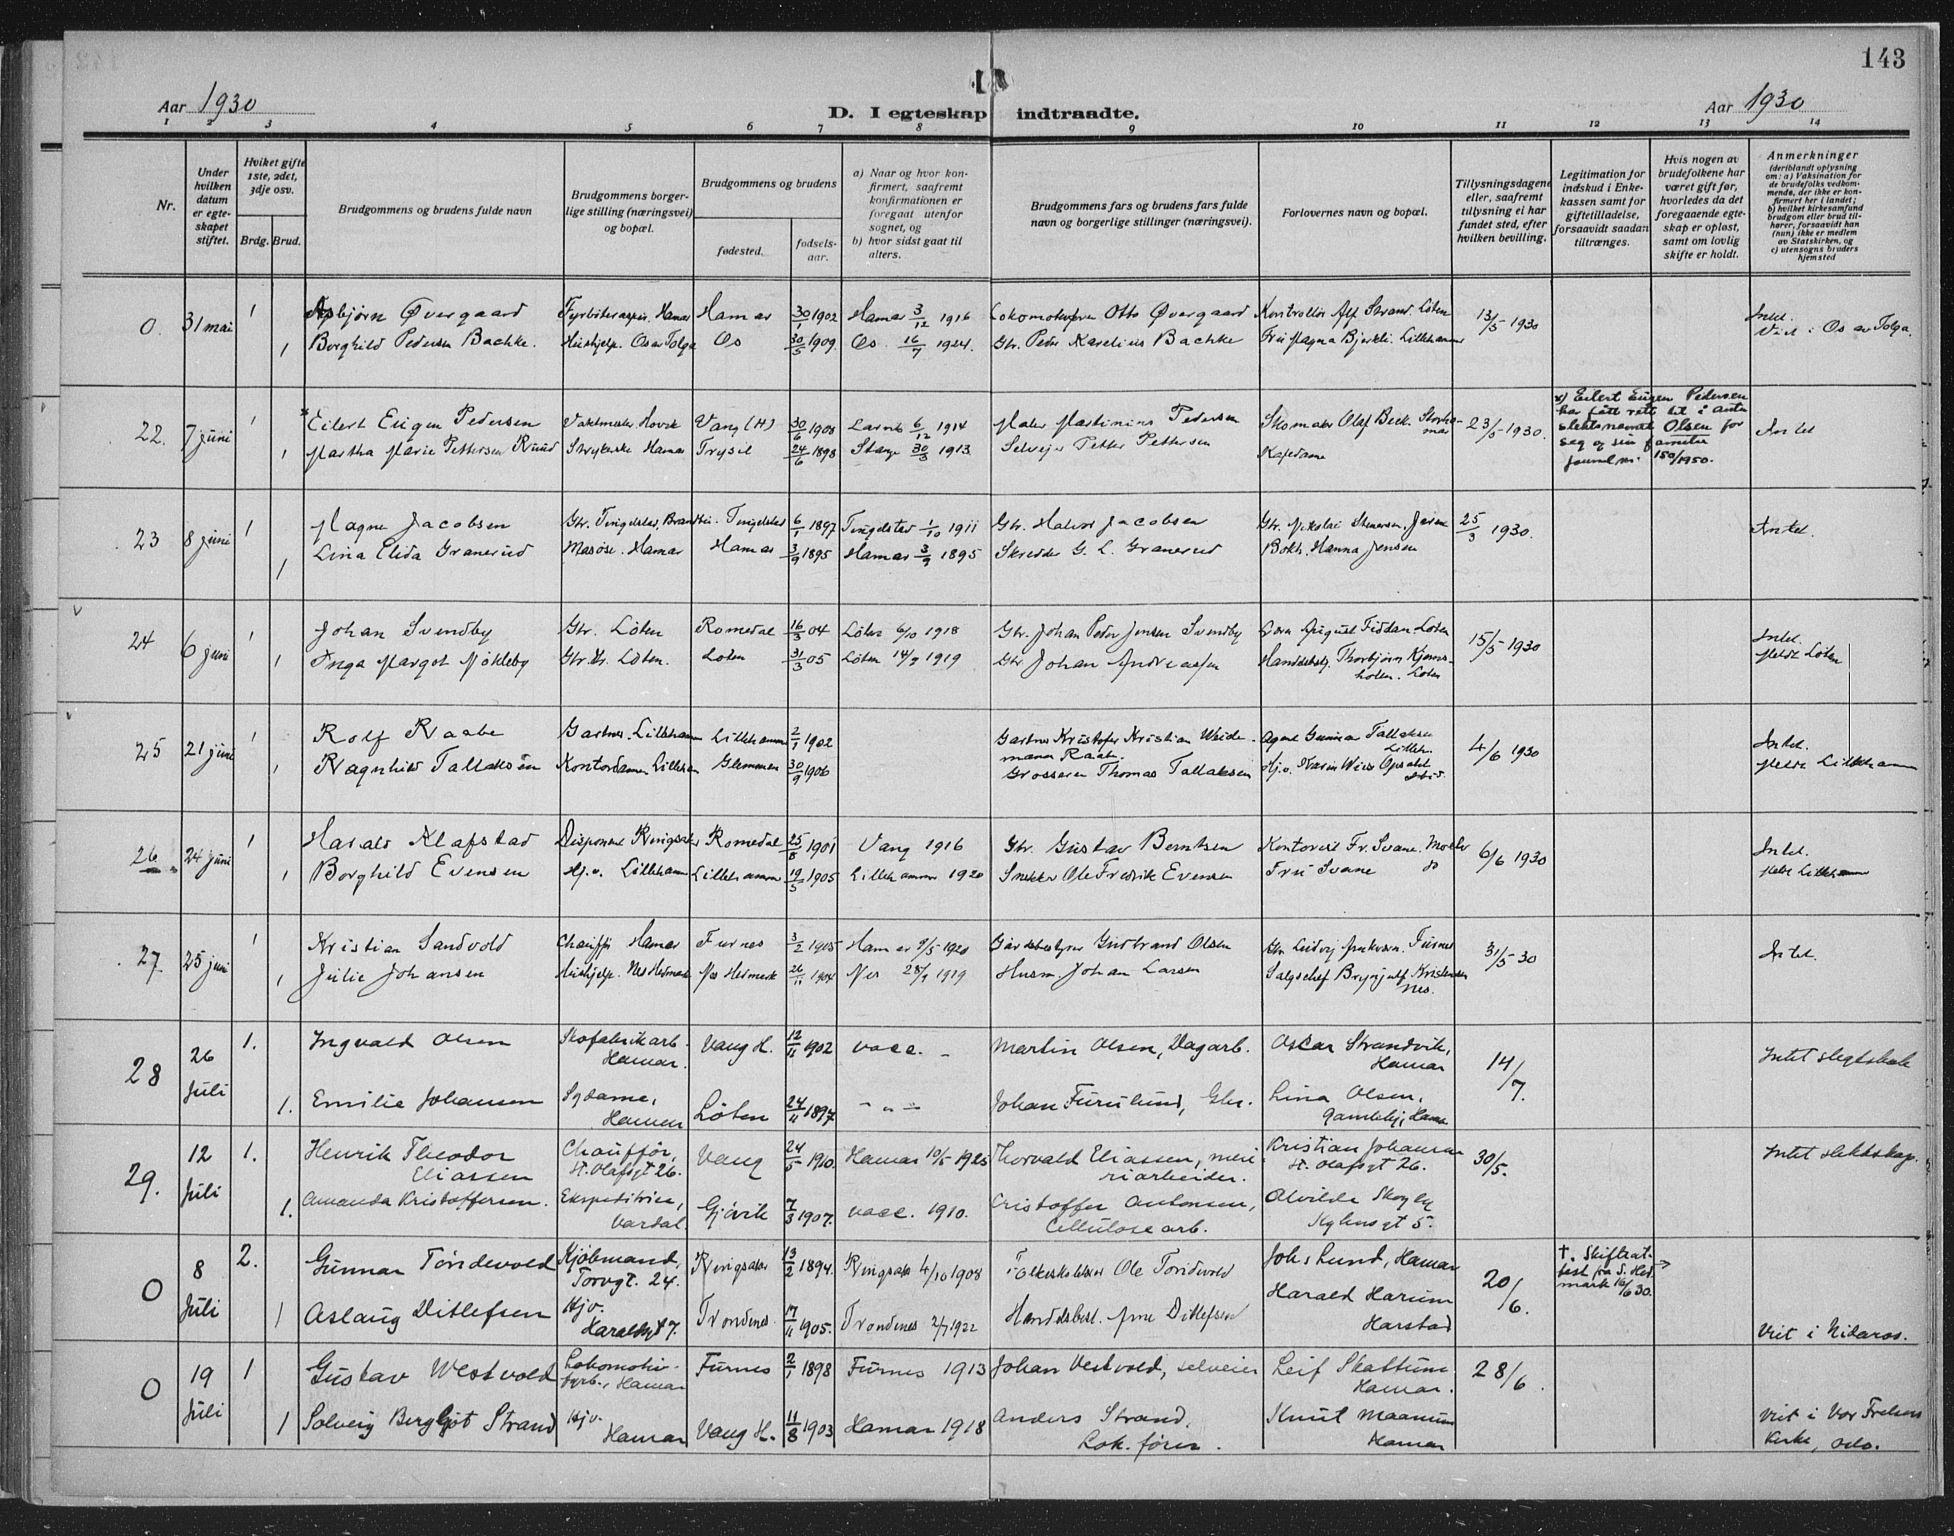 143
Aar 1930
D. I egteskap indtraadte.
Aar 1930
1 2 3 4 5 6 7 8 9 10 11 12 13 14
Nr.
Under hvilken datum er egteskapet stiftet.
Hvilket gifte 1ste, 2det, 3dje osv.
Brdg. Brud.
Brudgommens og brudens fulde navn
Brudgommens borgerlige stilling (næringsvei) og bopæl.
Brudgommens og brudens
fødested.
fødselsaar.
a) Naar og hvor konfirmert, saafremt konfirmationen er foregaat utenfor sognet, og
b) hvor sidst gaat til alters.
Brudgommens fars og brudens fars fulde navn og borgerlige stillinger (næringsvei).
Forlovernes navn og bopæl.
Tillysningsdagene eller, saafremt tillysning ei har fundet sted, efter hvilken bevilling.
Legitimation for indskud i Enkekassen samt for giftetilladelse, forsaavidt saadan tiltrænges.
Hvis nogen av brudefolkene har været gift før, hvorledes da det foregaaende egteskap er opløst, samt om lovlig skifte er holdt.
Anmerkninger
(deriblandt oplysning om: a) Vaksination for de brudefolks vedkommende, der ikke er konfirmert her i landet; b) hvilket kirkesamfund brudgom eller brud tilhører, forsaavidt han (hun) ikke er medlem av Statskirken, og c) utensogns bruders hjemsted
0. 31 mai 1 Asbjørn Øvergaard Hamar 30/1 1902 Hamar 3/12 1916 Otto Øvergaard 13/5 1930 Intet.
1 Borghild Pedersen Bachke. Hushjelp. Os av Tolga Os 30/5 1909. Os. 16/7 1924. Gbr. Peder Karelius Bachke Fru Magna Bjerkli. Lillehammer Viet i Os av Tolga.
22. 7 juni 1 Eilert Eugen Pedersen Vang (H) 30/6 1908 Larvik 6/12 1914 Maler Martinius Pedersen Skomaker Olaf Beck. 23/5 1930. Intet
1 Martha Marie Pettersen Ruud Strykerske Hamar Trysil 24/6 1898 Stange 30/3 1913 Selveier Petter Pettersen
x) Eilert Eugen Pedersen
har fått rett til å anta
slektsnavnet Olsen for
seg og sin familie
Journal nr. 150/1950.
23 8 juni 1 Magne Jacobsen Gbr. Tingelstad, Tingelstad 6/1 1897 Tingelstad 1/10 1911 Gbr. Halvor Jacobsen Gbr. Nikolai 25/3 1930. Intet.
1 Lina Elida Granerud Hamar Hamar 3/9 1895 Hamar 3/9 1895 Skredder G. L. Granerud Bokh. Hanna Jensen
24 6 juni 1 Johan Svendby Gbr. Løten Romedal 16/3 04 Løten 6/10 1918 Gbr. Johan Peder Jensen Svendby August Fiddan. Løten 15/5 1930 Intet.
1 Inga Margot Mökleby Løten. Løten 31/3 05 Løten 1919 Gbr Johan Andreassen Thorbjørn Løten Meldt Løten
25 21 juni 1 Rolf Raabe Gartner. Lillehammer Lillehammer 2/1 1902 Gartner Kristofer Kristian Weidemann Raabe. Agent Gunnar Tallaksen Lilleh. 4/6 1930 Intet.
1 Ragnhild Tallaksen Kontordame Lilleham Glemmen 30/9 1906 Grosserer Thomas Tallaksen Meldt Lillehammer
26 24 juni 1 Harald Klafstad Disponent Ringsaker Romedal 25/8 1901 Vang 1916 Gbr. Gustav Berntsen Kontorist Fr. Svane. 6/6 1930 Intet.
1 Borghild Evensen Hj.v. Lillehamm Lillehammer 19/5 1905 Lillehammer 1920 Snekker Ole Fredrik Evensen Fru Svane do Meldt Lillehammer
27. 25 juni 1 Kristian Sandvold Chauffør Hamar Furnes 3/2 1905 Hamar 9/5 1920 Gårdsbestyrer Gudbrand Olsen Furnes 31/5 30 Intet.
1 Julie Johansen Hushjelp. Nes Hedmark Nes Hedmark 26/11 1904 Nes 1919 Husm. Johan Larsen Salgschef Brynjulf Kristensen Nes.
28 26 Juli 1. Ingvald Olsen Skofabrikarb. Hamar. Vang H. 12/11 1902 vacc. – Martin Olsen, Dagarb. Oscar Strandvik, Hamar 14/7. Intet slegtskab
1. Emilie Johansen Sydame, Hamar Løten 24/11 1897 – „ – Johan Furulund, Gbr. Lina Olsen, Hamar
29. 12 Juli 1. Henrik Theodor Eliassen Chauffør, St. Olafsgt 26. Vang 24/5 1910. Hamar 10/5 1925 Thorvald Eliassen, meieriarbeider. Kristian Johansen St. Olafsgt 26. 30/5. Intet slektskap.
1. Amanda Kristoffersen. Ekspeditrice, Vardal Gjøvik 7/3 1907. vacc. 1910. Cristoffer Antonsen, Cellulosearb. Alvilde Skogly
0 8 Juli 2. Gunnar Töndevold Kjøbmand, Torvgt. 24. Ringsaker 13/2 1894. Ringsaker 4/10 1908 Ole Tondevold Joh. Lund, Hamar 20/6.
†. Skifteattest fra S. Hedmark 16/6 30.
1 Aslaug Ditlefsen Hjv. Haraldsgt 7. Trondenes 17/11 1905. Trondenes 2/7 1922 Handelsbest. Arne Ditlefsen Harald Harum Harstad Viet i Nidaros.
0 19 Juli 1 Gustav Westvold Lokomotivfyrb., Hamar Furnes 2/1 1898 Furnes 1913 Johan Vestvold, selveier Leif Skattum Hamar. 28/6.
1 Solveig Bergljot Strand Hjv. Hamar Vang H. 11/8 1903 Hamar 1918 Anders Strand, Lok. fører. Knut Maanum Hamar Viet i Vor Frelsers Kirke, Oslo.